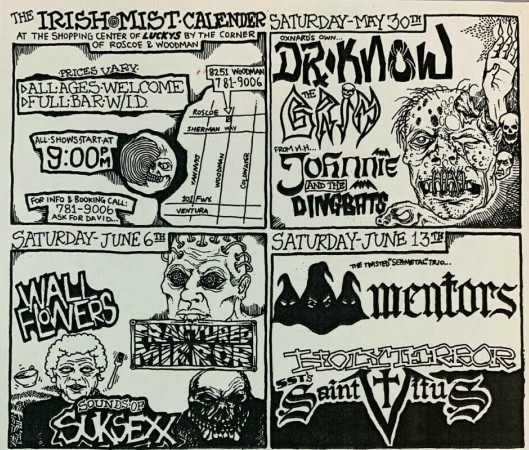 THE IRISH MIST·CALENDER
AT THE SHOPPING CENTER OF LUCKYS BY THE CORNER
OF ROSCOE & WOODMAN
·PRICES VARY·
▷ALL·AGES·WELCOME
▷FULL·BAR·W/I.D.
8251 WOODMAN
781-9006
ROSCOE
SHERMAN WAY
VAN NUYS
WOODMAN
COLDWATER
101 FWY.
VENTURA
ALL·SHOWS·START·AT
9:00PM
FOR INFO & BOOKING CALL:
781-9006
ASK FOR DAVID...
SATURDAY-MAY 30TH
OXNARD'S OWN...
DR·KNOW
THE
GRIM
FROM H.H...
Johnnie
AND THE
DINGBATS
SATURDAY-JUNE 6TH
WALL
FLOWERS
FRACTURED
MIRROR
SOUNDS OF
SUKSEXX
SATURDAY-JUNE 13TH
mentors
HOLY TERROR
SST's
Saint Vitus